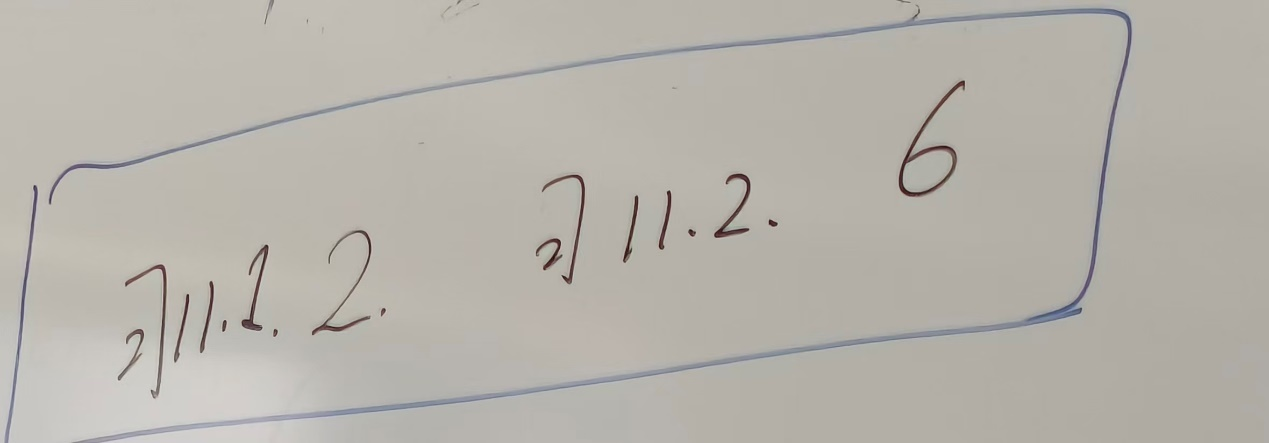 习11.1.2. 习11.2. 6